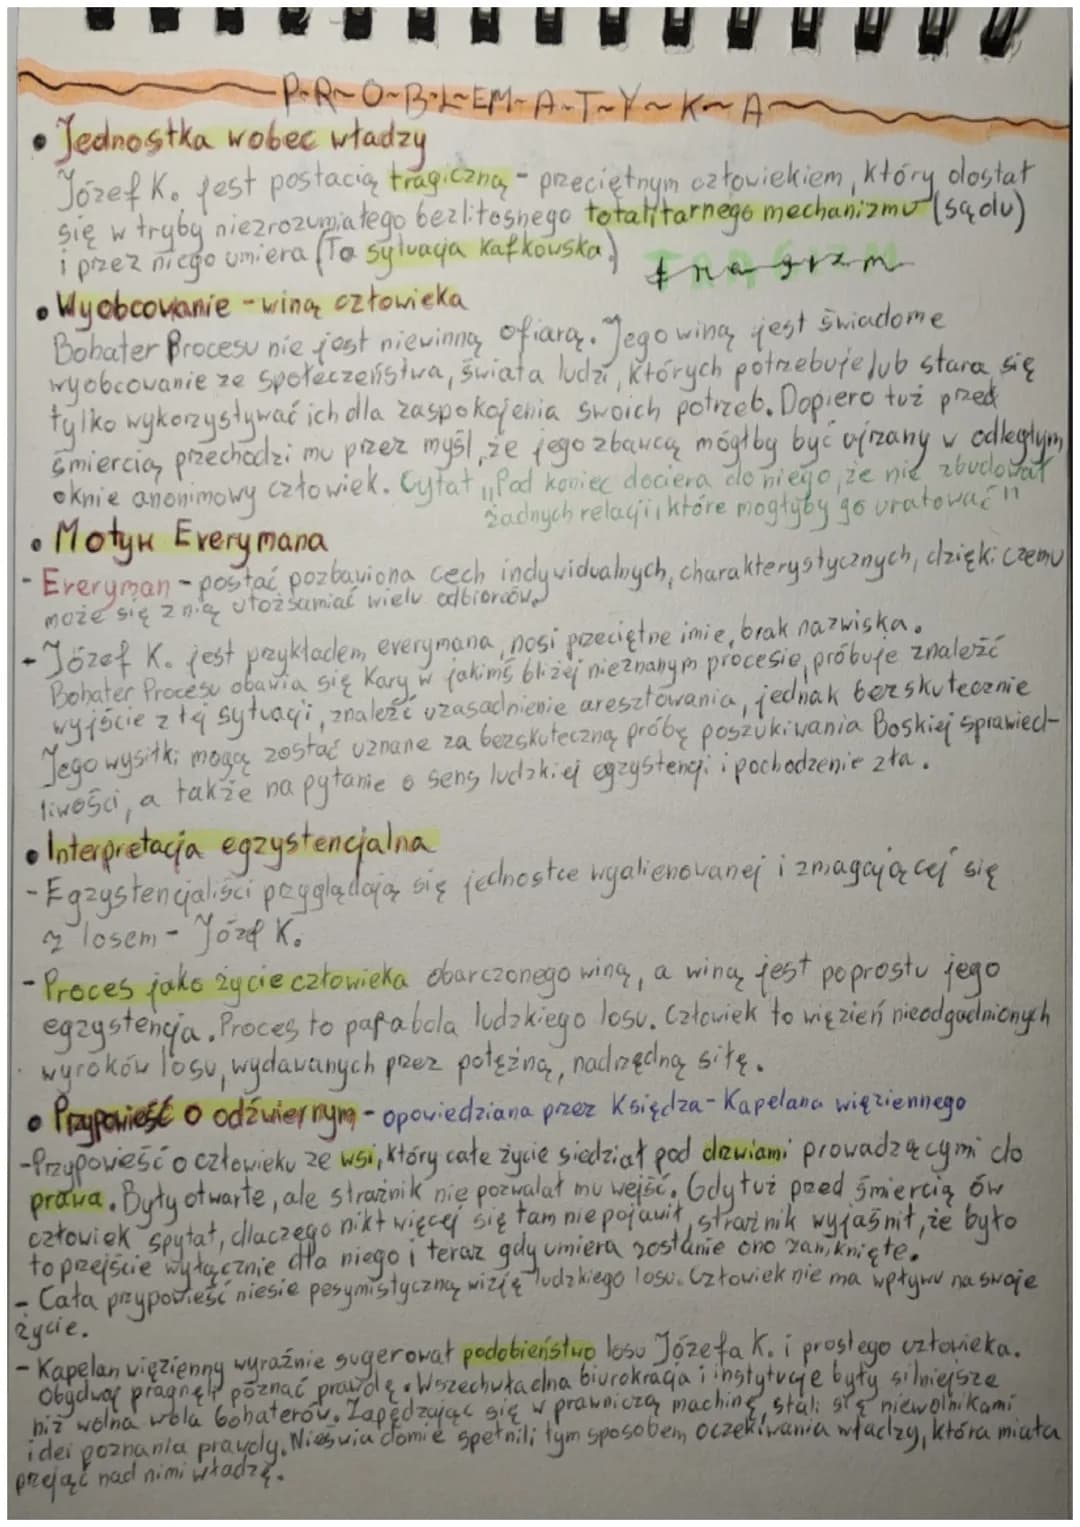 P~R~O~B~L~EM~A~T~Y~K~A
• Jednostka wobec władzy
Józef K. jest postacią tragiczną - przeciętnym człowiekiem, który dostał
się w tryby niezrozumiałego bezlitosnego totalitarnego mechanizmu (sądu)
i przez niego umiera (To sytuacja kafkowska.)
• Wyobcowanie - winą człowieka
Bohater Procesu nie jest niewinną ofiarą. Jego winą jest świadome
wyobcowanie ze społeczeństwa, świata ludzi, których potrzebuje lub stara się
tylko wykorzystywać ich dla zaspokojenia swoich potrzeb. Dopiero tuż przed
śmiercią przechodzi mu przez myśl, że jego zbawcą mógłby być ujrzany w odległym
oknie anonimowy człowiek. Cytat „Pod koniec dociera do niego, że nie zbudował
żadnych relacji, które mogłyby go uratować"
• Motyw Everymana
- Everyman - postać pozbawiona cech indywidualnych, charakterystycznych, dzięki czemu
może się z nią utożsamiać wielu odbiorców.
- Józef K. jest przykładem everymana, nosi przeciętne imię, brak nazwiska.
Bohater Procesu obawia się kary w jakimś bliżej nieznanym procesie, próbuje znaleźć
wyjście z tej sytuacji, znaleźć uzasadnienie aresztowania, jednak bezskutecznie
Jego wysiłki mogą zostać uznane za bezskuteczną próbę poszukiwania Boskiej sprawied-
liwości, a także na pytanie o sens ludzkiej egzystencji i pochodzenie zła.
• Interpretacja egzystencjalna
- Egzystencjaliści przyglądają się jednostce wyalienowanej i zmagającej się
z losem - Józef K.
- Proces jako życie człowieka obarczonego winą, a winą jest poprostu jego
egzystencja. Proces to parabola ludzkiego losu. Człowiek to więzień nieodgadnionych
wyroków losu, wydawanych przez potężną, nadrzędną siłę.
• Przypowieść o odźwiernym - opowiedziana przez Księdza-Kapelana więziennego
- Przypowieść o człowieku ze wsi, który całe życie siedział pod drzwiami prowadzącymi do
prawa. Były otwarte, ale strażnik nie pozwalał mu wejść. Gdy tuż przed śmiercią ów
człowiek spytał, dlaczego nikt więcej się tam nie pojawił, strażnik wyjaśnił, że było
to przejście wyłącznie dla niego i teraz gdy umiera zostanie ono zamknięte.
- Cała przypowieść niesie pesymistyczną wizję ludzkiego losu. Człowiek nie ma wpływu na swoje
życie.
- Kapelan więzienny wyraźnie sugerował podobieństwo losu Józefa K. i prostego człowieka.
Obydwaj pragnęli poznać prawdę. Wszechwładna biurokracja i instytucje były silniejsze
niż wolna wola bohaterów. Zapędzając się w prawniczą machinę, stali się niewolnikami
idei poznania prawdy. Nieświadomie spełnili tym sposobem oczekiwania władzy, która miała
przejąć nad nimi władzę.